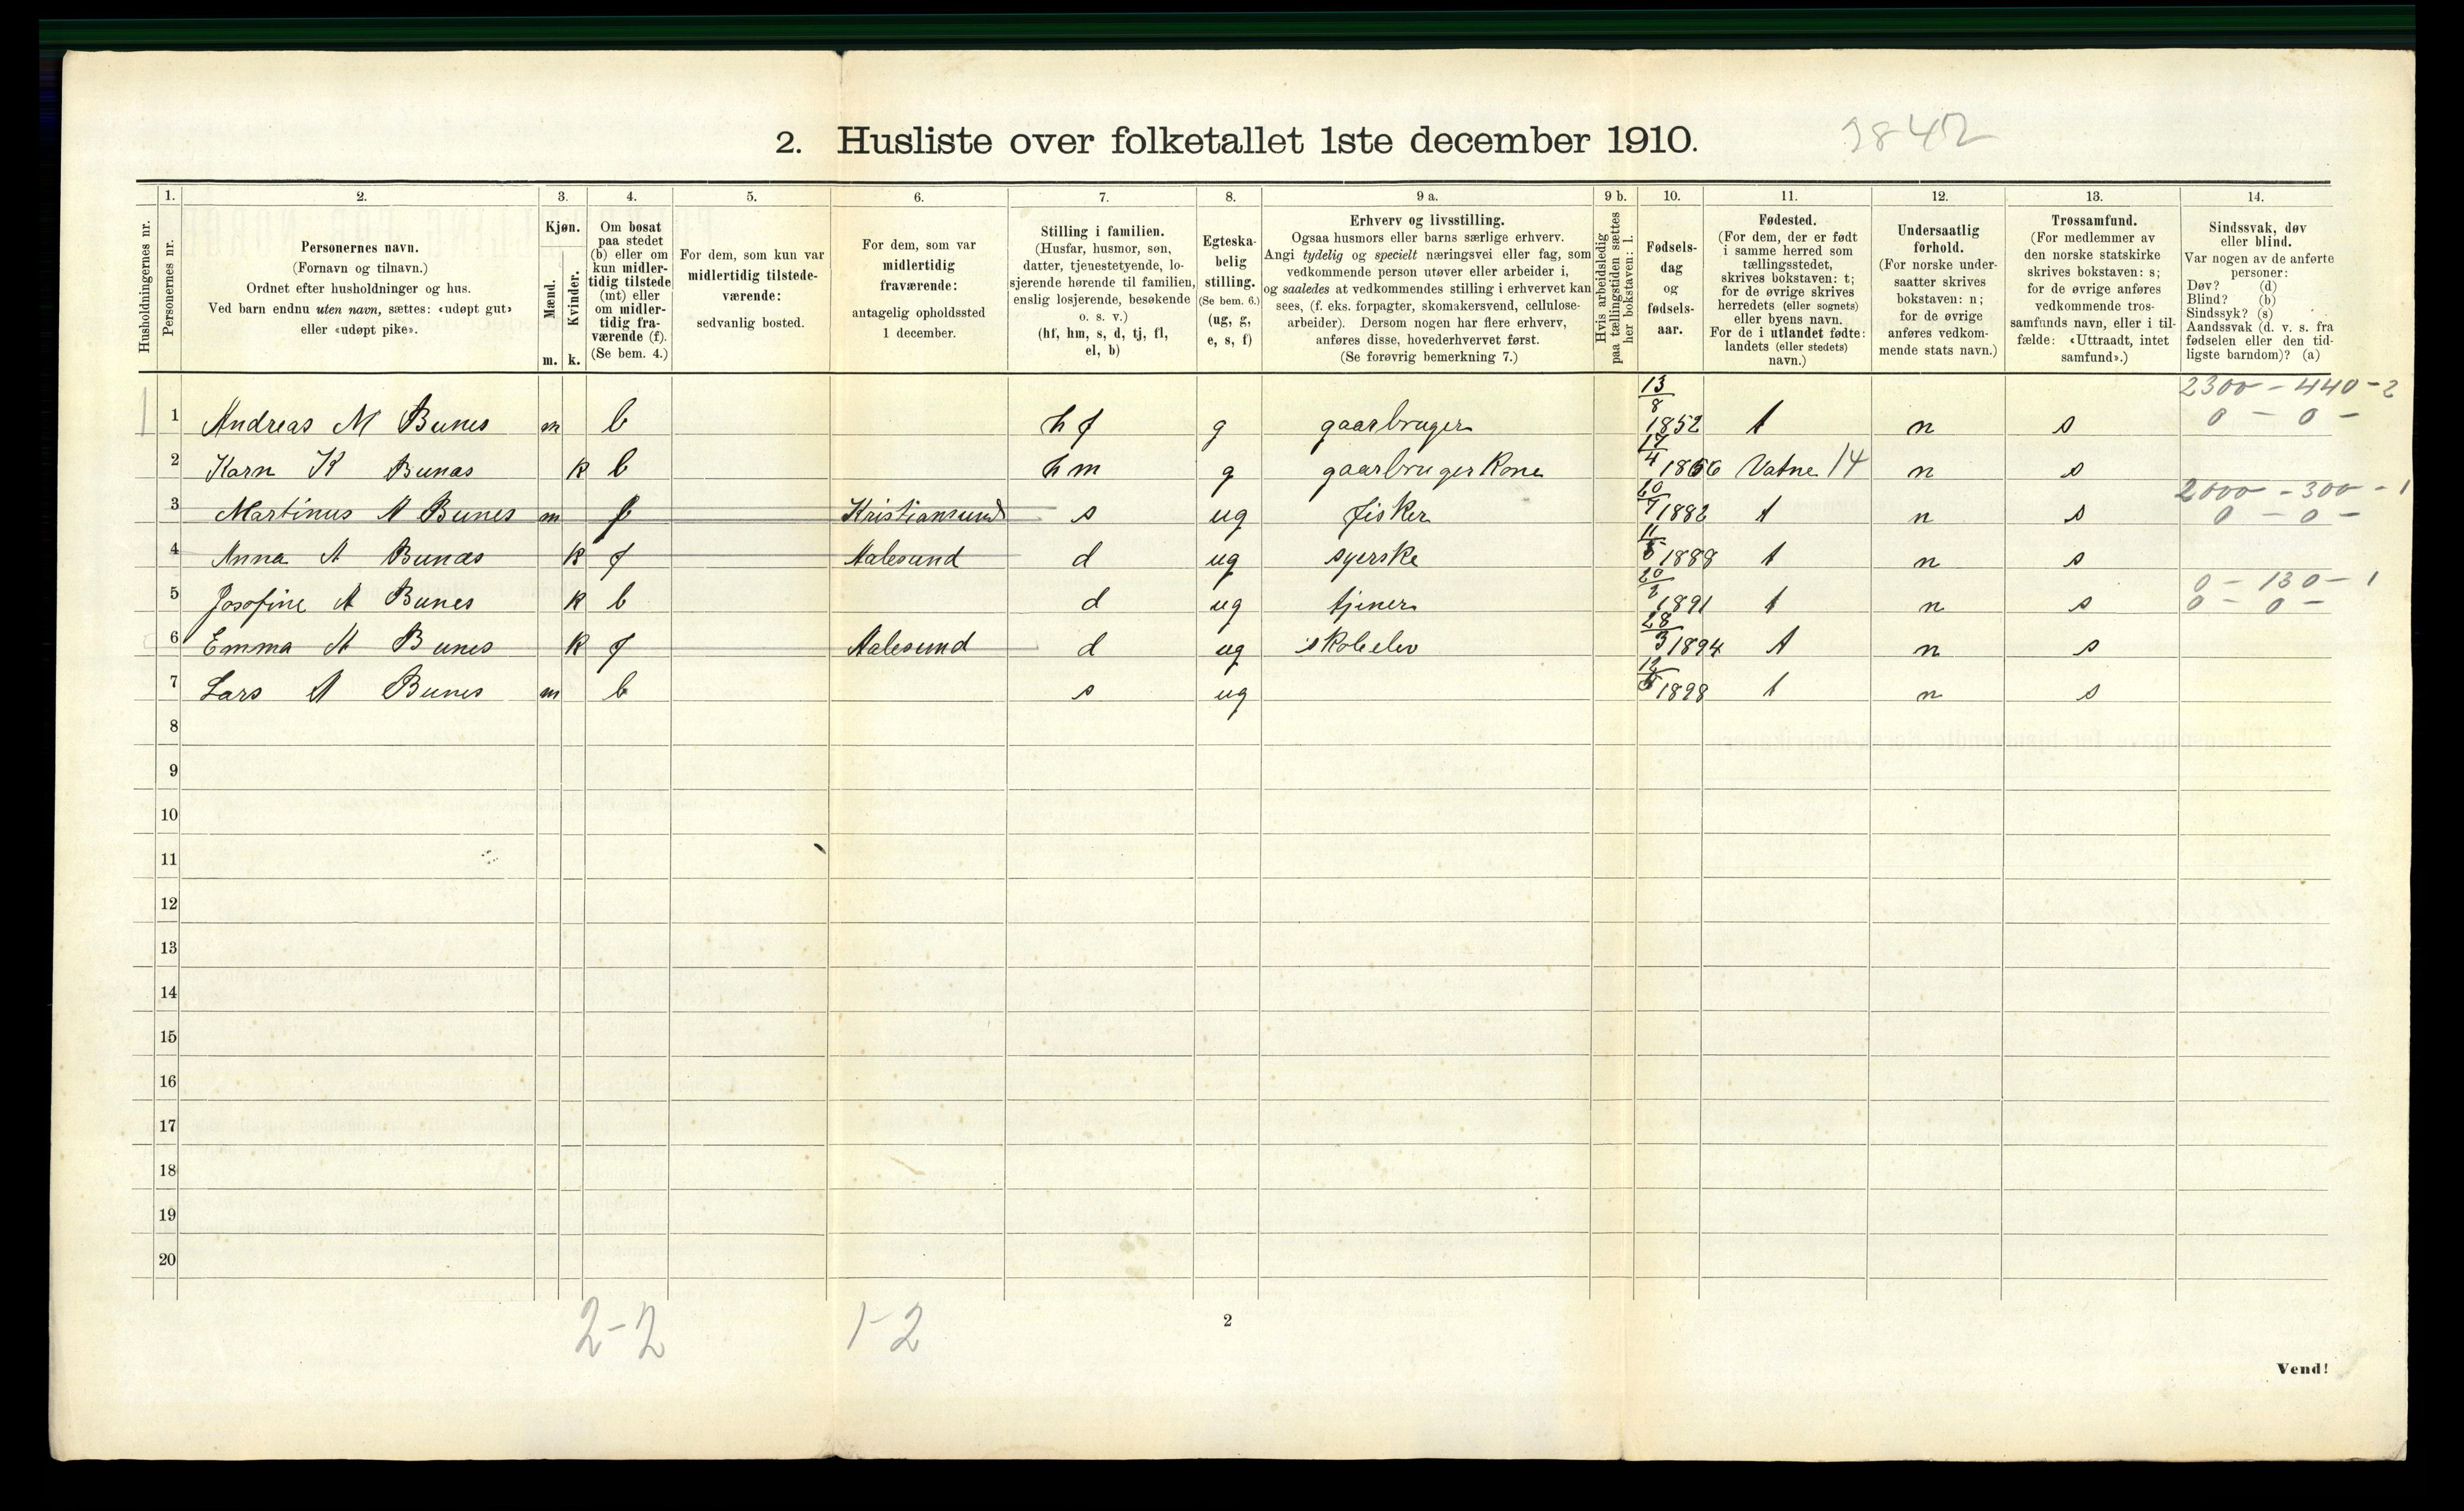 2. Husliste over folketallet 1ste december 1910. 2842
1. 2. 3. 4. 5. 6. 7. 8. 9 a. 9 b. 10. 11. 12. 13. 14.
Husholdningernes nr.
Personernes nr.
Personernes navn.
(Fornavn og tilnavn.)
Ordnet efter husholdninger og hus.
Ved barn endnu uten navn, sættes: «udøpt gut»
eller «udøpt pike».
Kjøn.
Mænd.
Kvinder.
m. k.
Om bosat
paa stedet
(b) eller om
kun midler-
tidig tilstede
(mt) eller
om midler-
tidig fra-
værende (f).
(Se bem. 4.)
For dem, som kun var
midlertidig tilstede-
værende:
sedvanlig bosted.
For dem, som var
midlertidig
fraværende:
antagelig opholdssted
1 december.
Stilling i familien.
(Husfar, husmor, søn,
datter, tjenestetyende, lo-
sjerende hørende til familien,
enslig losjerende, besøkende
o. s. v.)
(hf, hm, s, d, tj, fl,
el, b)
Egteska-
belig
stilling.
(Se bem. 6.)
(ug, g,
e, s, f)
Erhverv og livsstilling.
Ogsaa husmors eller barns særlige erhverv.
Angi tydelig og specielt næringsvei eller fag, som
vedkommende person utøver eller arbeider i,
og saaledes at vedkommendes stilling i erhvervet kan
sees, (f. eks. forpagter, skomakersvend, cellulose-
arbeider). Dersom nogen har flere erhverv,
anføres disse, hovederhvervet først.
(Se forøvrig bemerkning 7.)
Hvis arbeidsledig
paa tællingstiden sættes
her bokstaven: l.
Fødsels-
dag
og
fødsels-
aar.
Fødested.
(For dem, der er født
i samme herred som
tællingsstedet,
skrives bokstaven: t;
for de øvrige skrives
herredets (eller sognets)
eller byens navn.
For de i utlandet fødte:
landets (eller stedets)
navn.)
Undersaatlig
forhold.
(For norske under-
saatter skrives
bokstaven: n;
for de øvrige
anføres vedkom-
mende stats navn.)
Trossamfund.
(For medlemmer av
den norske statskirke
skrives bokstaven: s;
for de øvrige anføres
vedkommende tros-
samfunds navn, eller i til-
fælde: «Uttraadt, intet
samfund».)
Sindssvak, døv
eller blind.
Var nogen av de anførte
personer:
Døv? (d)
Blind? (b)
Sindssyk? (s)
Aandssvak (d. v. s. fra
fødselen eller den tid-
ligste barndom)? (a)
2300 - 440 - 2
1 1 Andreas M Bunes m b hf g gaarbruger 13/8 1852 t n s 0 - 0 -
2 Karn K Bunæs k b hm g gaarbruger kone 17/4 1856 Vatne 14 n s
2000 - 300 - 1
3 Martinus A Bunes m f Kristiansund s ug fisker 20/7 1882 t n s 0 - 0 -
4 Anna A Bunæs k f Aalesund d ug syerske 11/5 1888 t n s
0 - 130 - 1
5 Josofine A Bunes k b d ug tjener 20/2 1891 t n s 0 - 0 -
6 Emma A Bunes k f Aalesund d ug skoleelev 28/3 1894 t n s
7 Lars A Bunes m b s ug 1898 t n s
8
9
10
11
12
13
14
15
16
17
18
19
20
2-2 1-2 2
Vend!